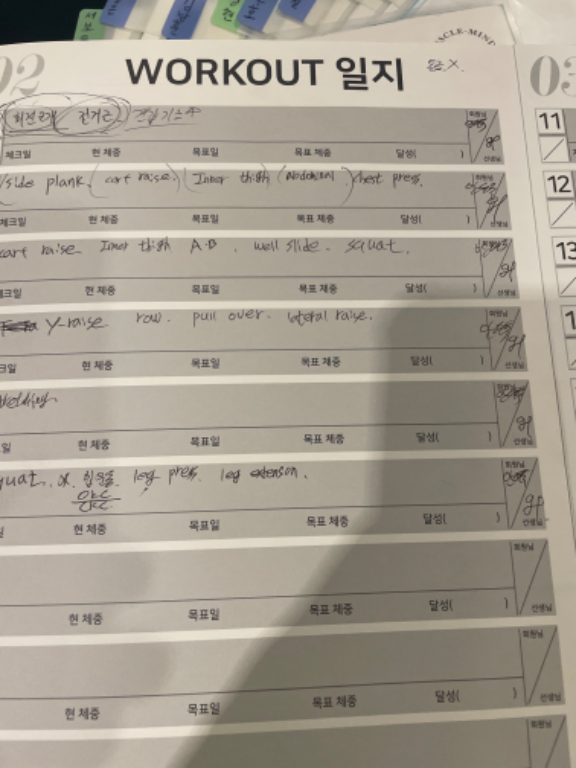 02
WORKOUT 일지
03
회전근개 전거근
회원님
체크일 현 체중 목표일 목표 체중 달성( ) 선생님
11
/side plank. (carf raise.) (Inner thigh (Abdominal) chest press.
회원님
체크일 현 체중 목표일 목표 체중 달성( ) 선생님
12
carf raise Inner thigh A.D. wall slide. squat.
크일 현 체중 목표일 목표 체중 달성( ) 선생님
13
Y-raise row. pull over. lateral raise.
회원님
크일 현 체중 목표일 목표 체중 달성( ) 선생님
1
일 현 체중 목표일 목표 체중 달성( ) 선생님
quat. leg press. leg extension.
회원님
현 체중 목표일 목표 체중 달성( ) 선생님
회원님
현 체중 목표일 목표 체중 달성( ) 선생님
회원님
현 체중 목표일 목표 체중 달성( ) 선생님
회원님